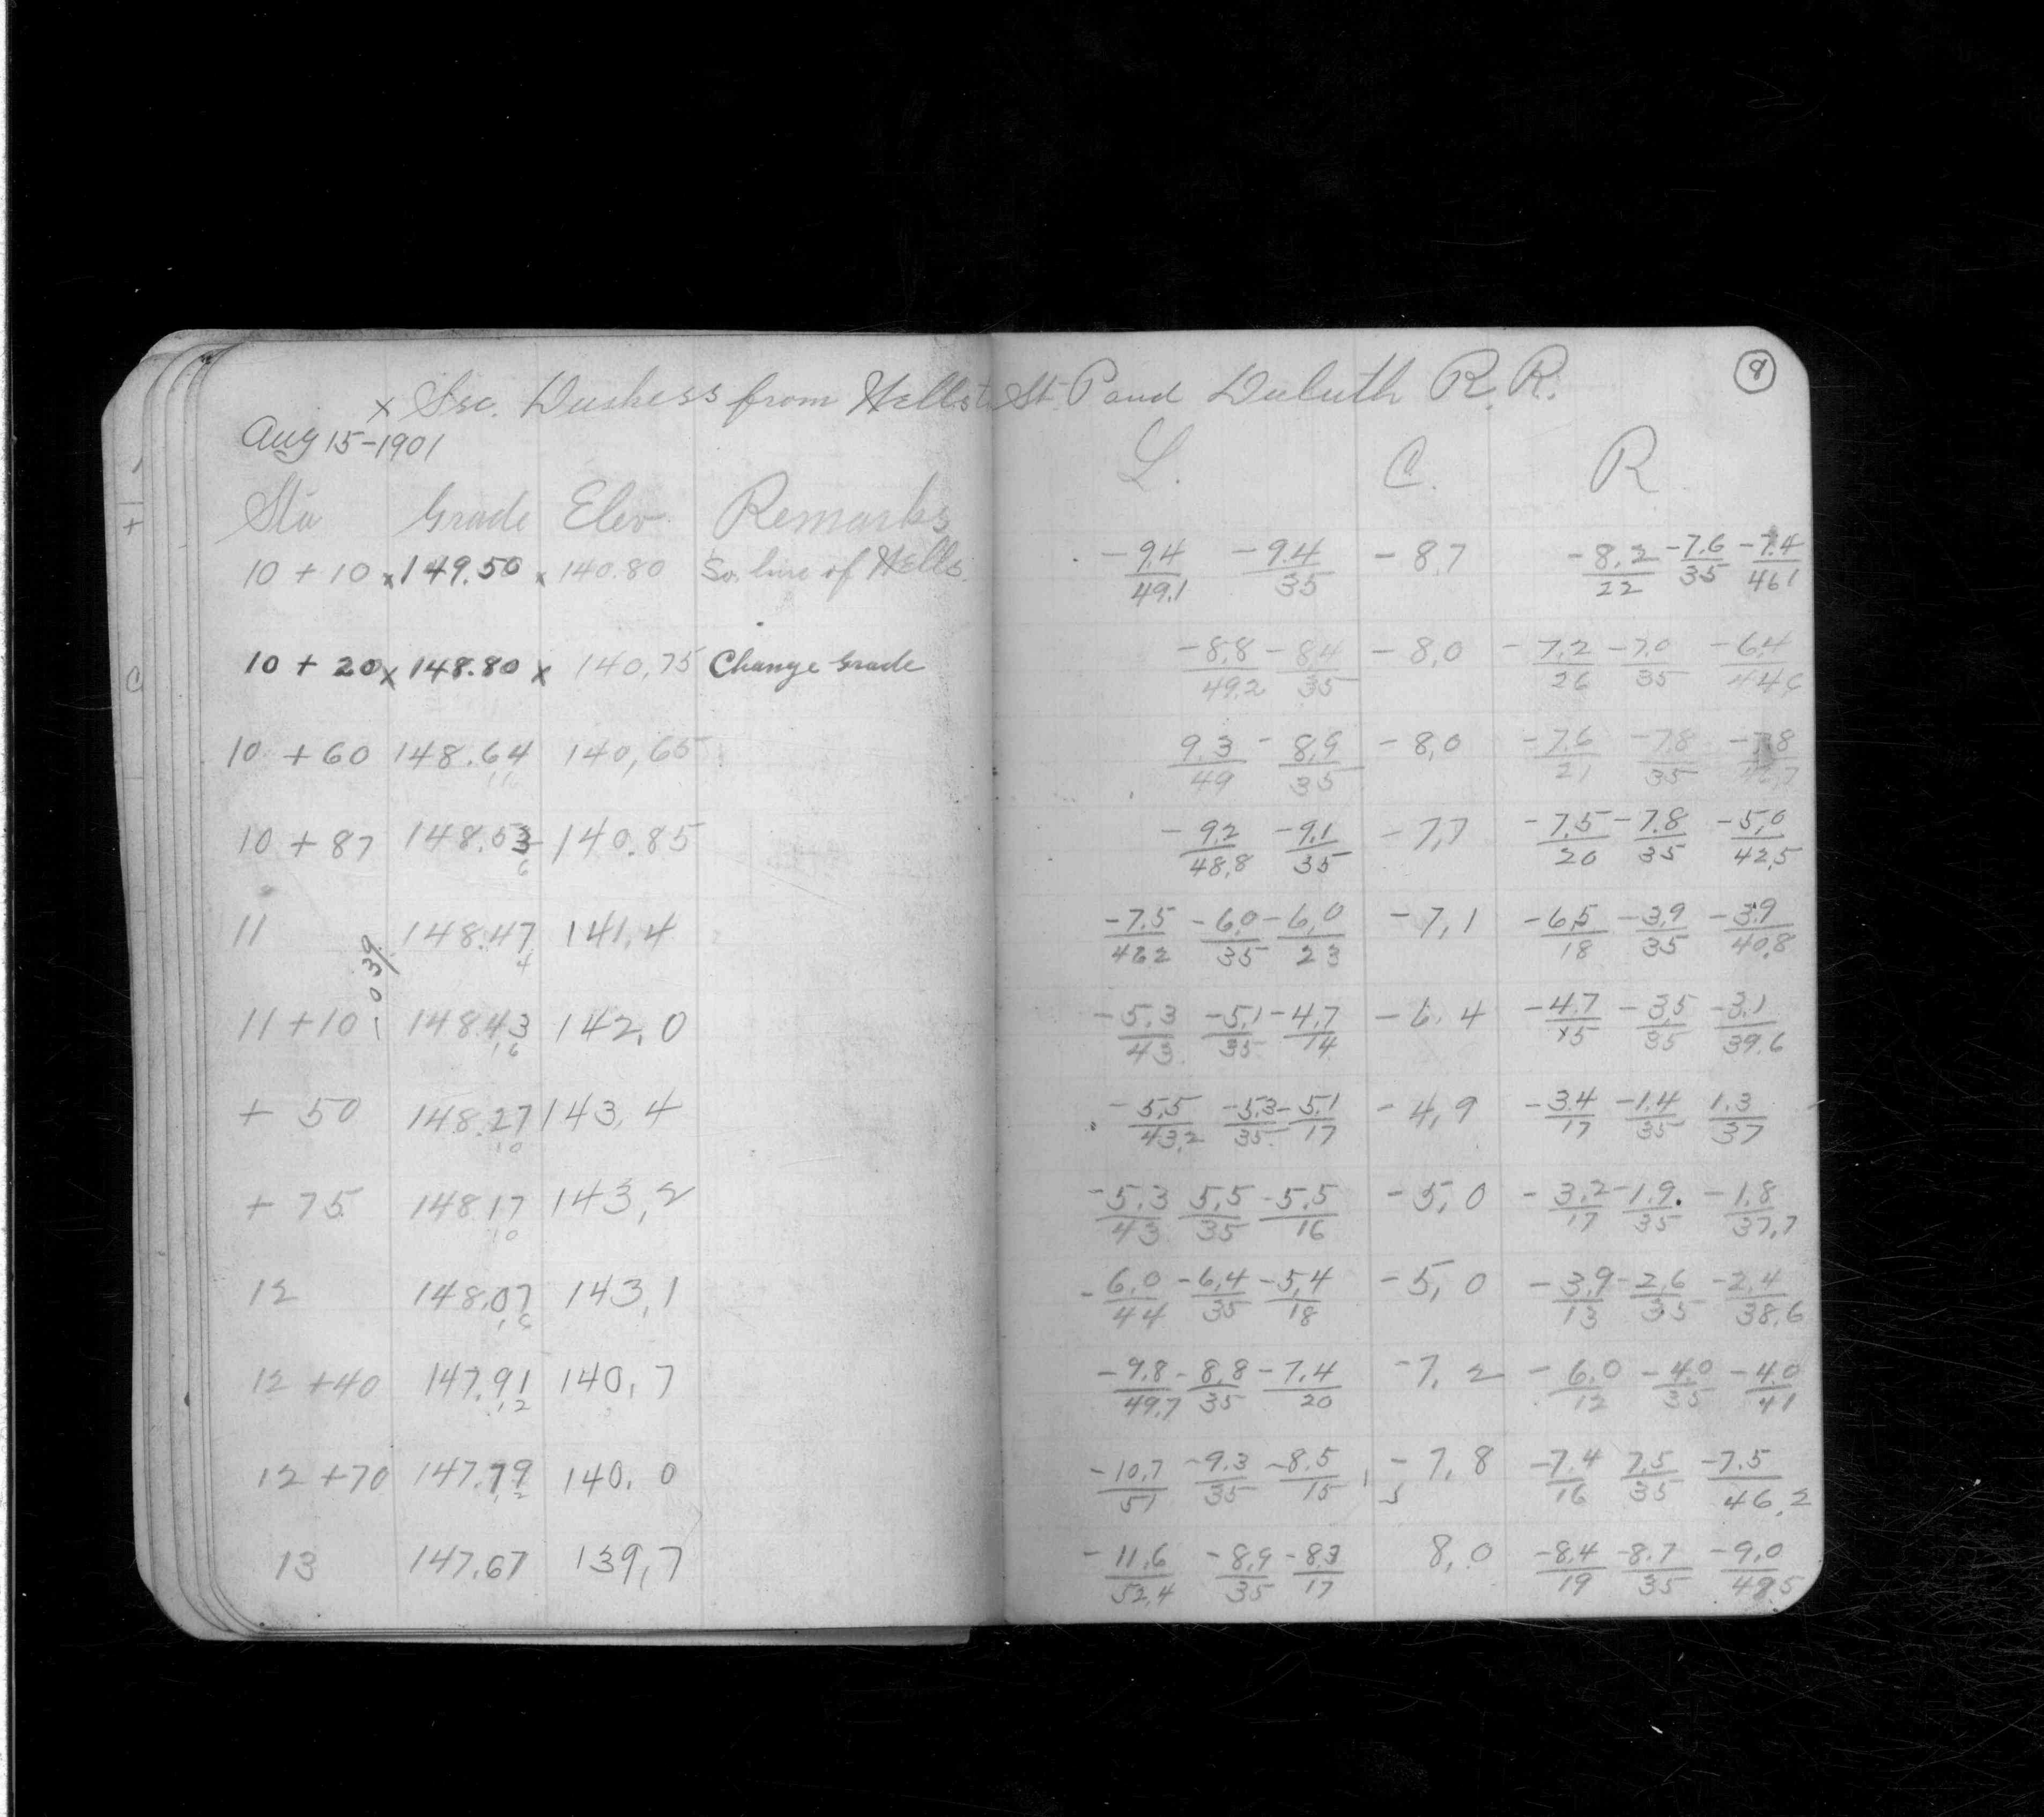 x Sec. Duchess from Wells to St. P and Duluth R. R. 8
Aug 15-1901
L. C. R
Sta Grade Elev Remarks
10 + 10 x 149.50 x 140.80 So. line of Wells. -9.4/49.1 -9.4/35 -8.7 -8.2/22 -7.6/35 -7.4/46.1
10 + 20 x 148.80 x 140.75 Change Grade -8.8/49.2 -8.4/35 -8.0 -7.2/26 -7.0/35 -6.4/44.6
10 + 60 148.64 140.65 9.3/49 -8.9/35 -8.0 -7.6/21 -7.8/35
10 + 87 148.53 140.85 -9.2/48.8 -9.1/35 -7.7 -7.5/20 -7.8/35 -5.0/42.5
11 148.47 141.4 -7.5/46.2 -6.0/35 -6.0/23 -7.1 -6.5/18 -3.9/35 -3.9/40.8
.039
11 + 10 148.43 142.0 -5.3/43 -5.1/35 -4.7/14 -6.4 -4.7/15 -3.5/35 -3.1/39.6
+ 50 148.27 143.4 -5.5/43.2 -5.3/35 -5.1/17 -4.9 -3.4/17 -1.4/35 1.3/37
+ 75 148.17 143.2 -5.3/43 5.5/35 -5.5/16 -5.0 -3.2/17 -1.9/35 -1.8/37.7
12 148.07 143.1 -6.0/44 -6.4/35 -5.4/18 -5.0 -3.9/13 -2.6/35 -2.4/38.6
12 + 40 147.91 140.7 -9.8/49.7 -8.8/35 -7.4/20 -7.2 -6.0/12 -4.0/35 -4.0/41
12 + 70 147.79 140.0 -10.7/51 -9.3/35 -8.5/15 -7.8 -7.4/16 7.5/35 -7.5/46.2
13 147.67 139.7 -11.6/52.4 -8.9/35 -8.3/17 8.0 -8.4/19 -8.7/35 -9.0/48.5